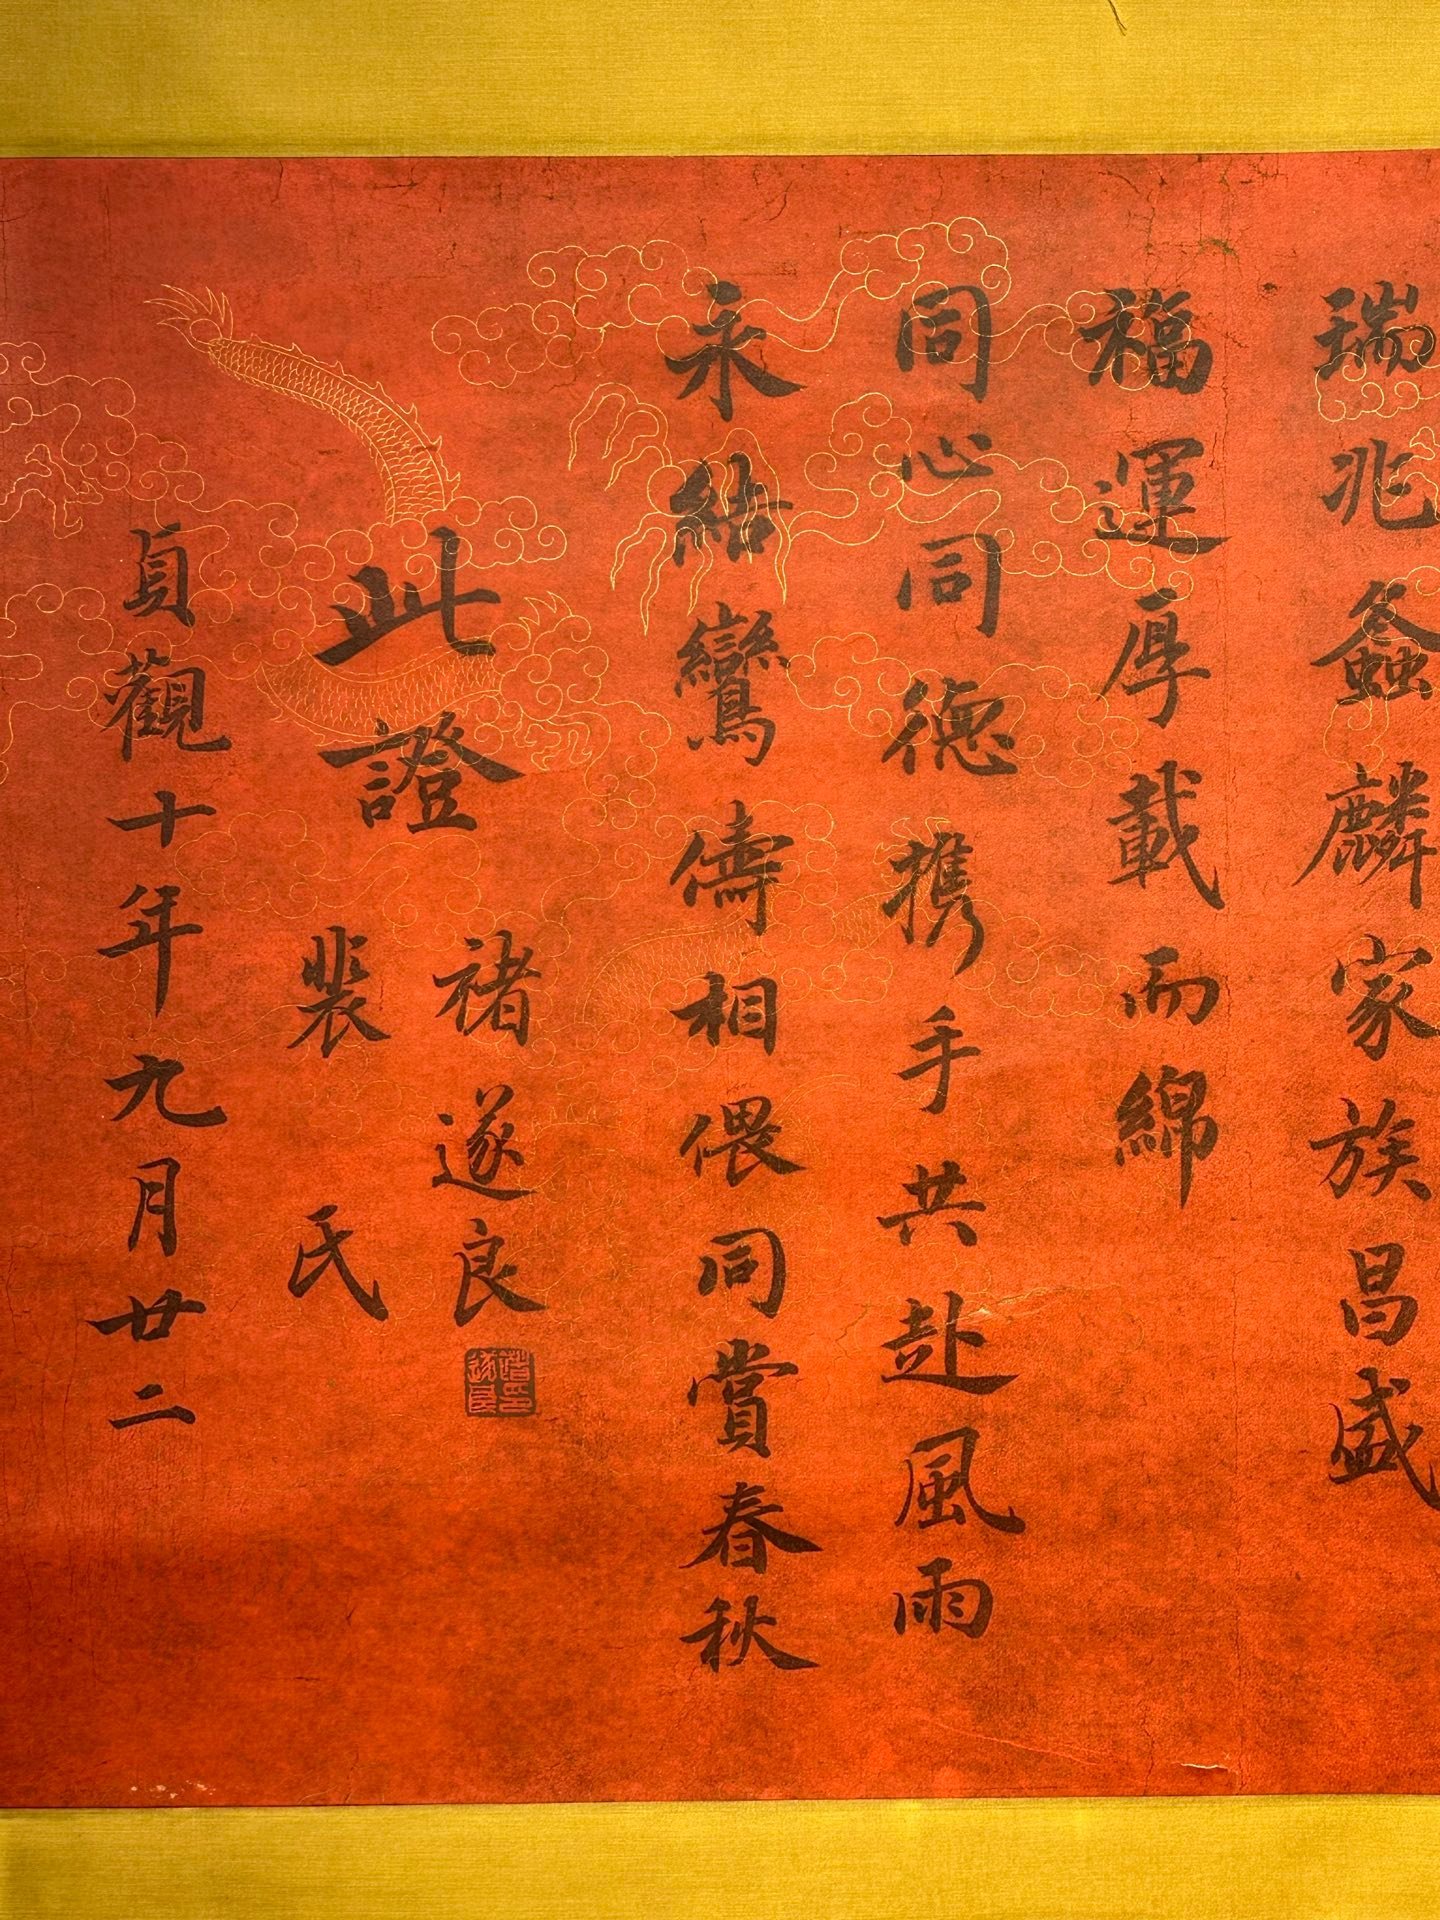 瑞兆螽麟家族昌盛
福運厚載而綿
同心同德携手共赴風雨
永結鸞儔相偎同賞春秋
此證
褚遂良
裴氏
貞觀十年九月廿二